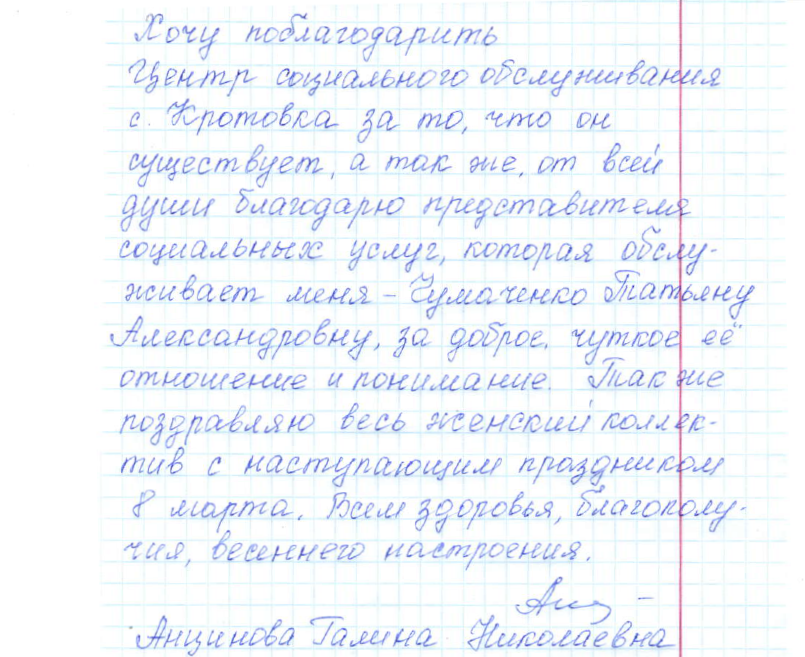 Хочу поблагодарить
Центр социального обслуживания
с. Кротовка за то, что он
существует, а так же, от всей
души благодарю представителя
социальных услуг, которая обслу-
живает меня – Чумаченко Татьяну
Александровну, за доброе, чуткое её
отношение и понимание. Так же
поздравляю весь женский коллек-
тив с наступающим праздником
8 марта. Всем здоровья, благополу-
чия, весеннего настроения.
Анцинова Галина Николаевна